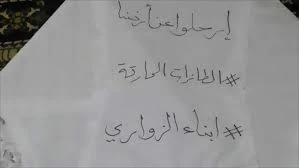 إرحلوا عن أرضنا
#الطائرات الحارقة
#ابناء الزواري